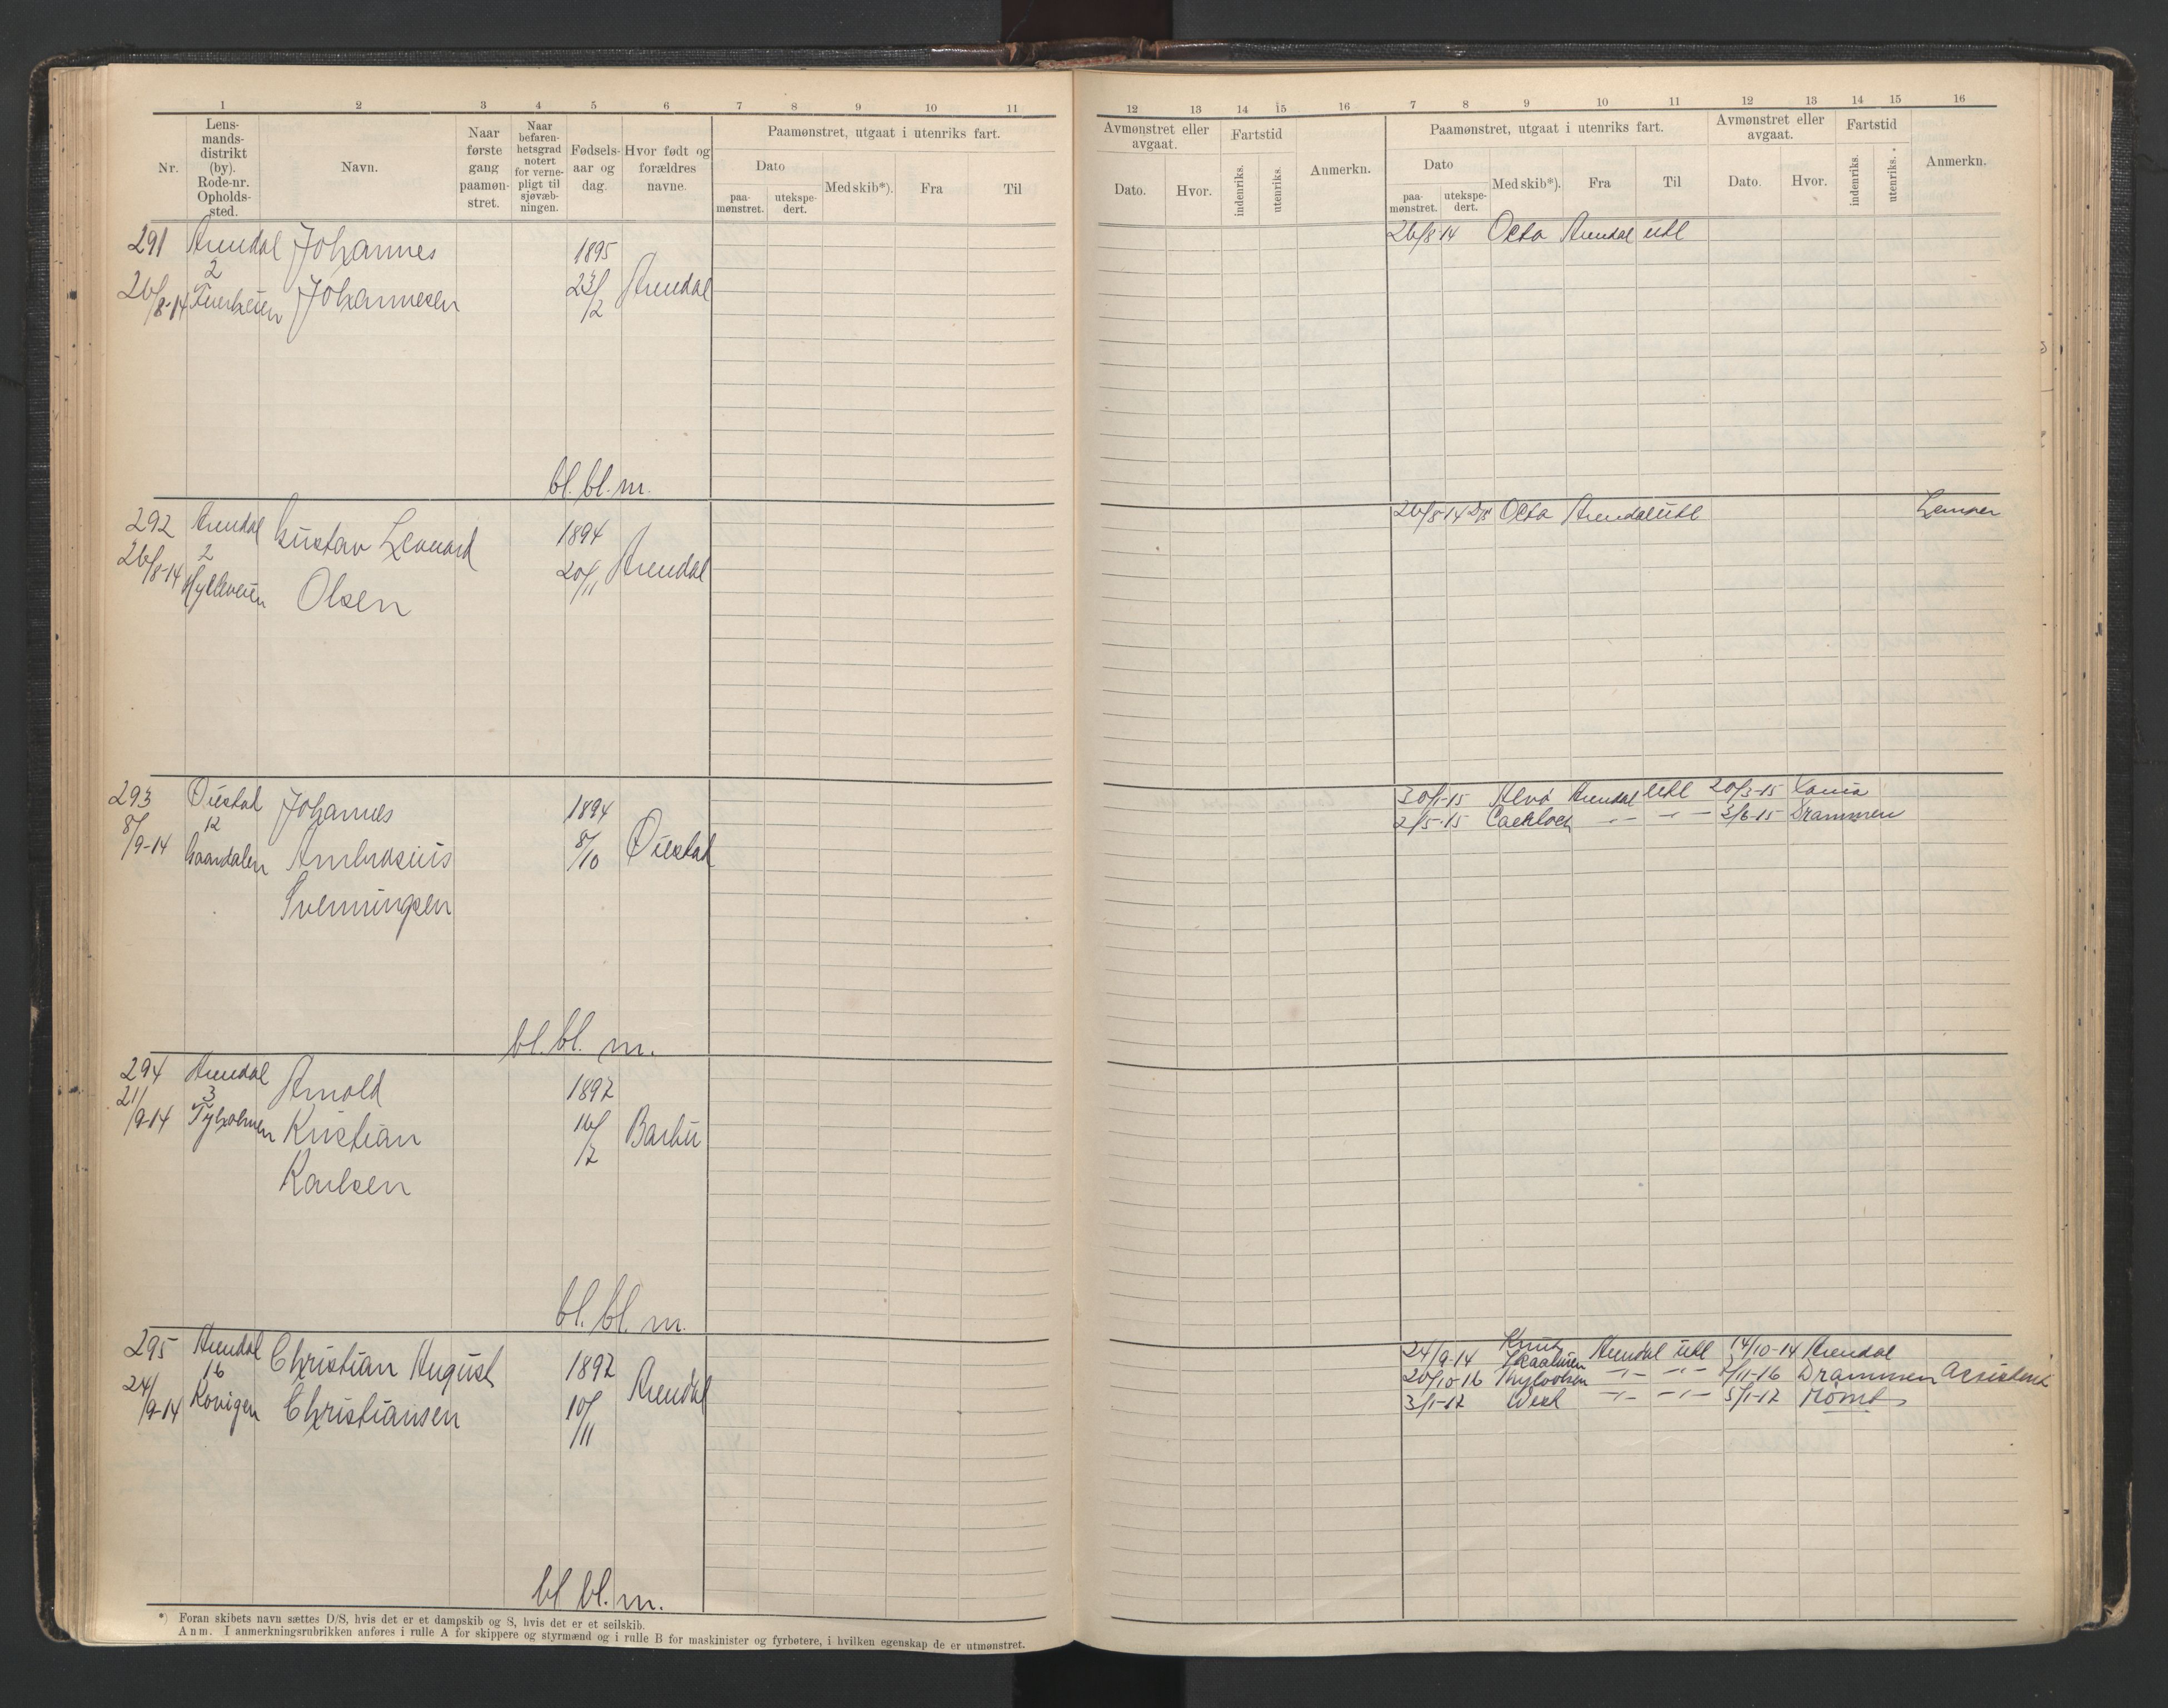 1 2 3 4 5 6 7 8 9 10 11
Nr. Lens-mands-distrikt (by). Rode-nr. Opholds-sted. Navn. Naar første gang paamøn-stret. Naar befaren-hetsgrad notert for verne-pligt til sjøvæb-ningen. Fødsels-aar og dag. Hvor født og forældres navne. Paamønstret, utgaat i utenriks fart.
Dato Med skib*). Fra Til
paa-mønstret. utekspe-dert.
291 Arendal Johannes 1895
2
26/8-14 Johannesen 23/2 Arendal
bl. bl. m.
292 Arendal Gustav Leonard 1894
2
26/8-14 Olsen 20/11 Arendal
293 Øiestad Johannes 1894
12
8/9-14 Ambrosius 8/10 Øiestad
Svenningsen
bl. bl. m.
294 Arendal Arnold 1897
3
21/9-14 Tyholmen Kristian 16/7 Barbu
Karlsen
bl. bl. m.
295 Arendal Christian August 1897
16
24/9-14 Christiansen 10/11 Arendal
bl bl. m.
*) Foran skibets navn sættes D/S, hvis det er et dampskib og S, hvis det er et seilskib.
Anm. I anmerkningsrubrikken anføres i rulle A for skippere og styrmænd og i rulle B for maskinister og fyrbøtere, i hvilken egenskap de er utmønstret.
12 13 14 15 16 7 8 9 10 11 12 13 14 15 16
Avmønstret eller avgaat. Fartstid Anmerkn. Paamønstret, utgaat i utenriks fart. Avmønstret eller avgaat. Fartstid Anmerkn.
Dato. Hvor. indenriks. utenriks. Dato Med skib*). Fra Til Dato. Hvor. indenriks. utenriks.
paa-mønstret. utekspe-dert.
26/8-14 Octa Arendal utl
26/8-14 D/S Octa Arendal utl Lemper
30/1-15 Arendal utl 20/3-15 Xania
2/5-15 -"- -"- 3/6-15 Drammen
24/9-14 Knut Skaaluren Arendal utl 14/10-14 Arendal
20/10-16 -"- -"- /11-16 Drammen Assistent
3/1-17 West -"- -"- 5/1-17 Rømt